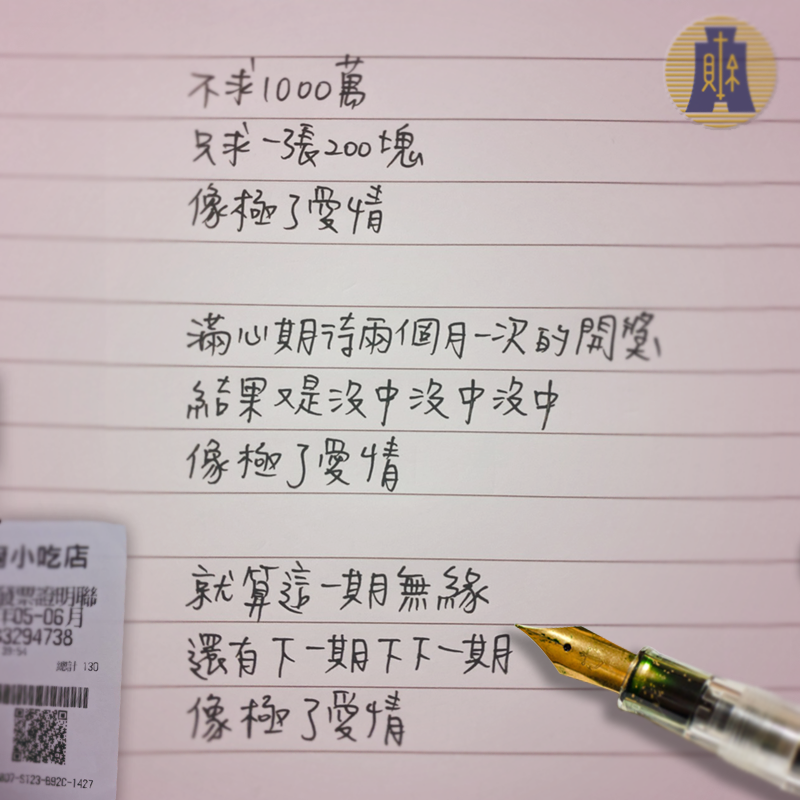 財
不求1000萬
只求一張200塊
像極了愛情
滿心期待兩個月一次的開獎
結果又是沒中沒中沒中
像極了愛情
就算這一期無緣
還有下一期下下一期
像極了愛情
小吃店
發票證明聯
05-06月
3294738
總計 130
5123-B92C-1427